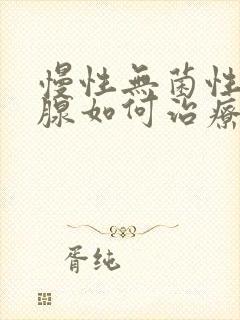 慢性無菌性
腺如何治療
胥纯